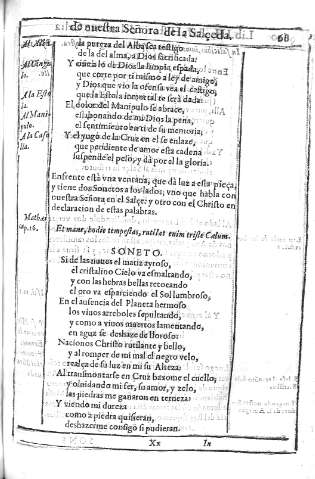 de nuestra Señora de la Salçeda. 68
Al Alba. la pureza del Alba sea testigo
de la del alma, a Dios sacrificada:
Y con vn lo de Dios la limpia espada,
que corte por ti mismo a ley de amigo,
y Dios que vio la ofensa vea el castigo,
A la Esto que la Estola inmortal te será dada:
la. El dolor del Manipulo se abrace,
Al Mani eslabonando de mi Dios la pena,
pulo. el sentimiento en ti de su memoria:
A la Casu Y el yugo de la Cruz en el se enlaze,
lla. que pendiente de amor esta cadena
suspende el peso, y dá por el la gloria.
Enfrente està vna ventana, que dà luz a esta pieça,
y tiene dos Sonetos a los lados; vno que habla con
nuestra Señora en el Salçe: y otro con el Christo en
Math. declaracion de estas palabras.
cap. 16.
Et mane, hodie tempestas, rutilat enim triste Cælum.
SONETO.
Si de las nuues el matiz ayroso,
el cristalino Cielo va esmaltando,
y con las hebras bellas retocando
el oro va esparciendo el Sol lumbroso,
En el ausencia del Planeta hermoso
los viuos arreboles sepultando,
y como a viuos muertos lamentando,
en agua se deshaze de lloroso:
Nacionos Christo rutilante y bello,
y al romper de mi mal el negro velo,
realça de su luz en mi su Alteza:
Al transmontarse en Cruz baxome el cuello,
y oluidando mi ser, su amor, y zelo,
las piedras me ganaron en terneza:
Y viendo mi dureza
como a piedra quisieran,
deshazerme consigo si pudieran.
Xx In